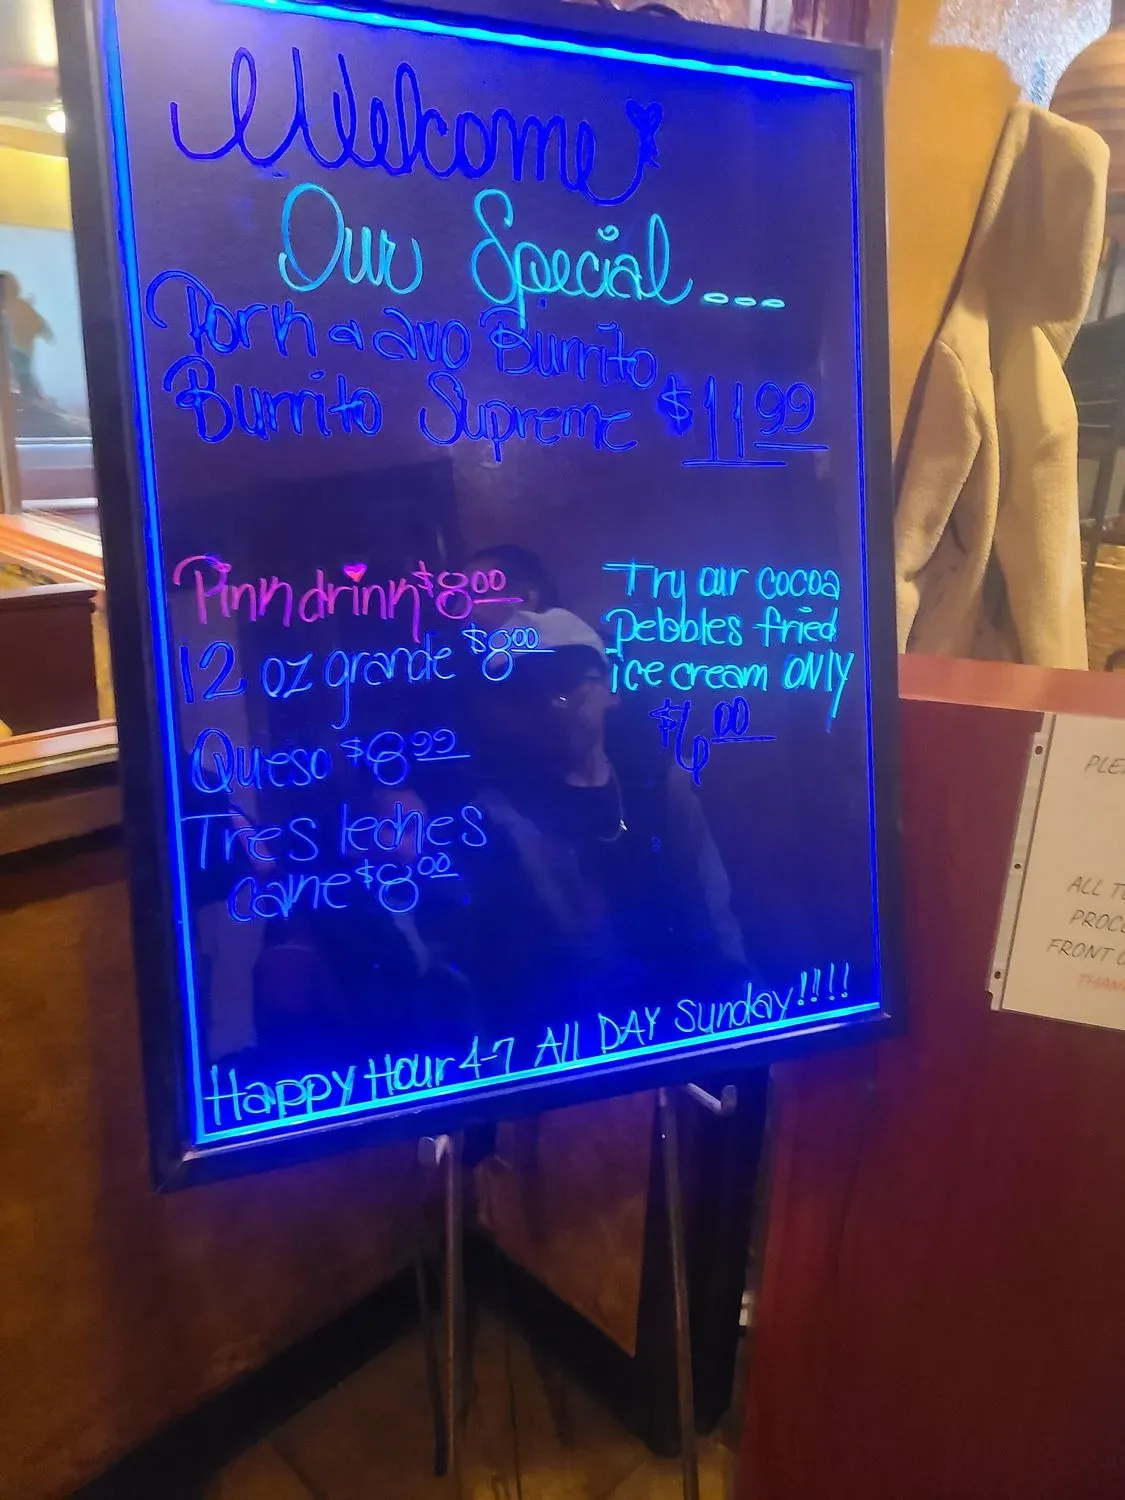 Welcome
Our Special...
Pork & avo Burrito
Burrito Supreme $11.99
Pink drink $8.00
12 oz grande $8.00
Queso $8.99
Tres leches
cake $8.00
Try our cocoa
Pebbles fried
ice cream ONLY
$6.00
Happy Hour 4-7 All DAY Sunday!!!!
PLE
ALL T
PROC
FRONT
THAN